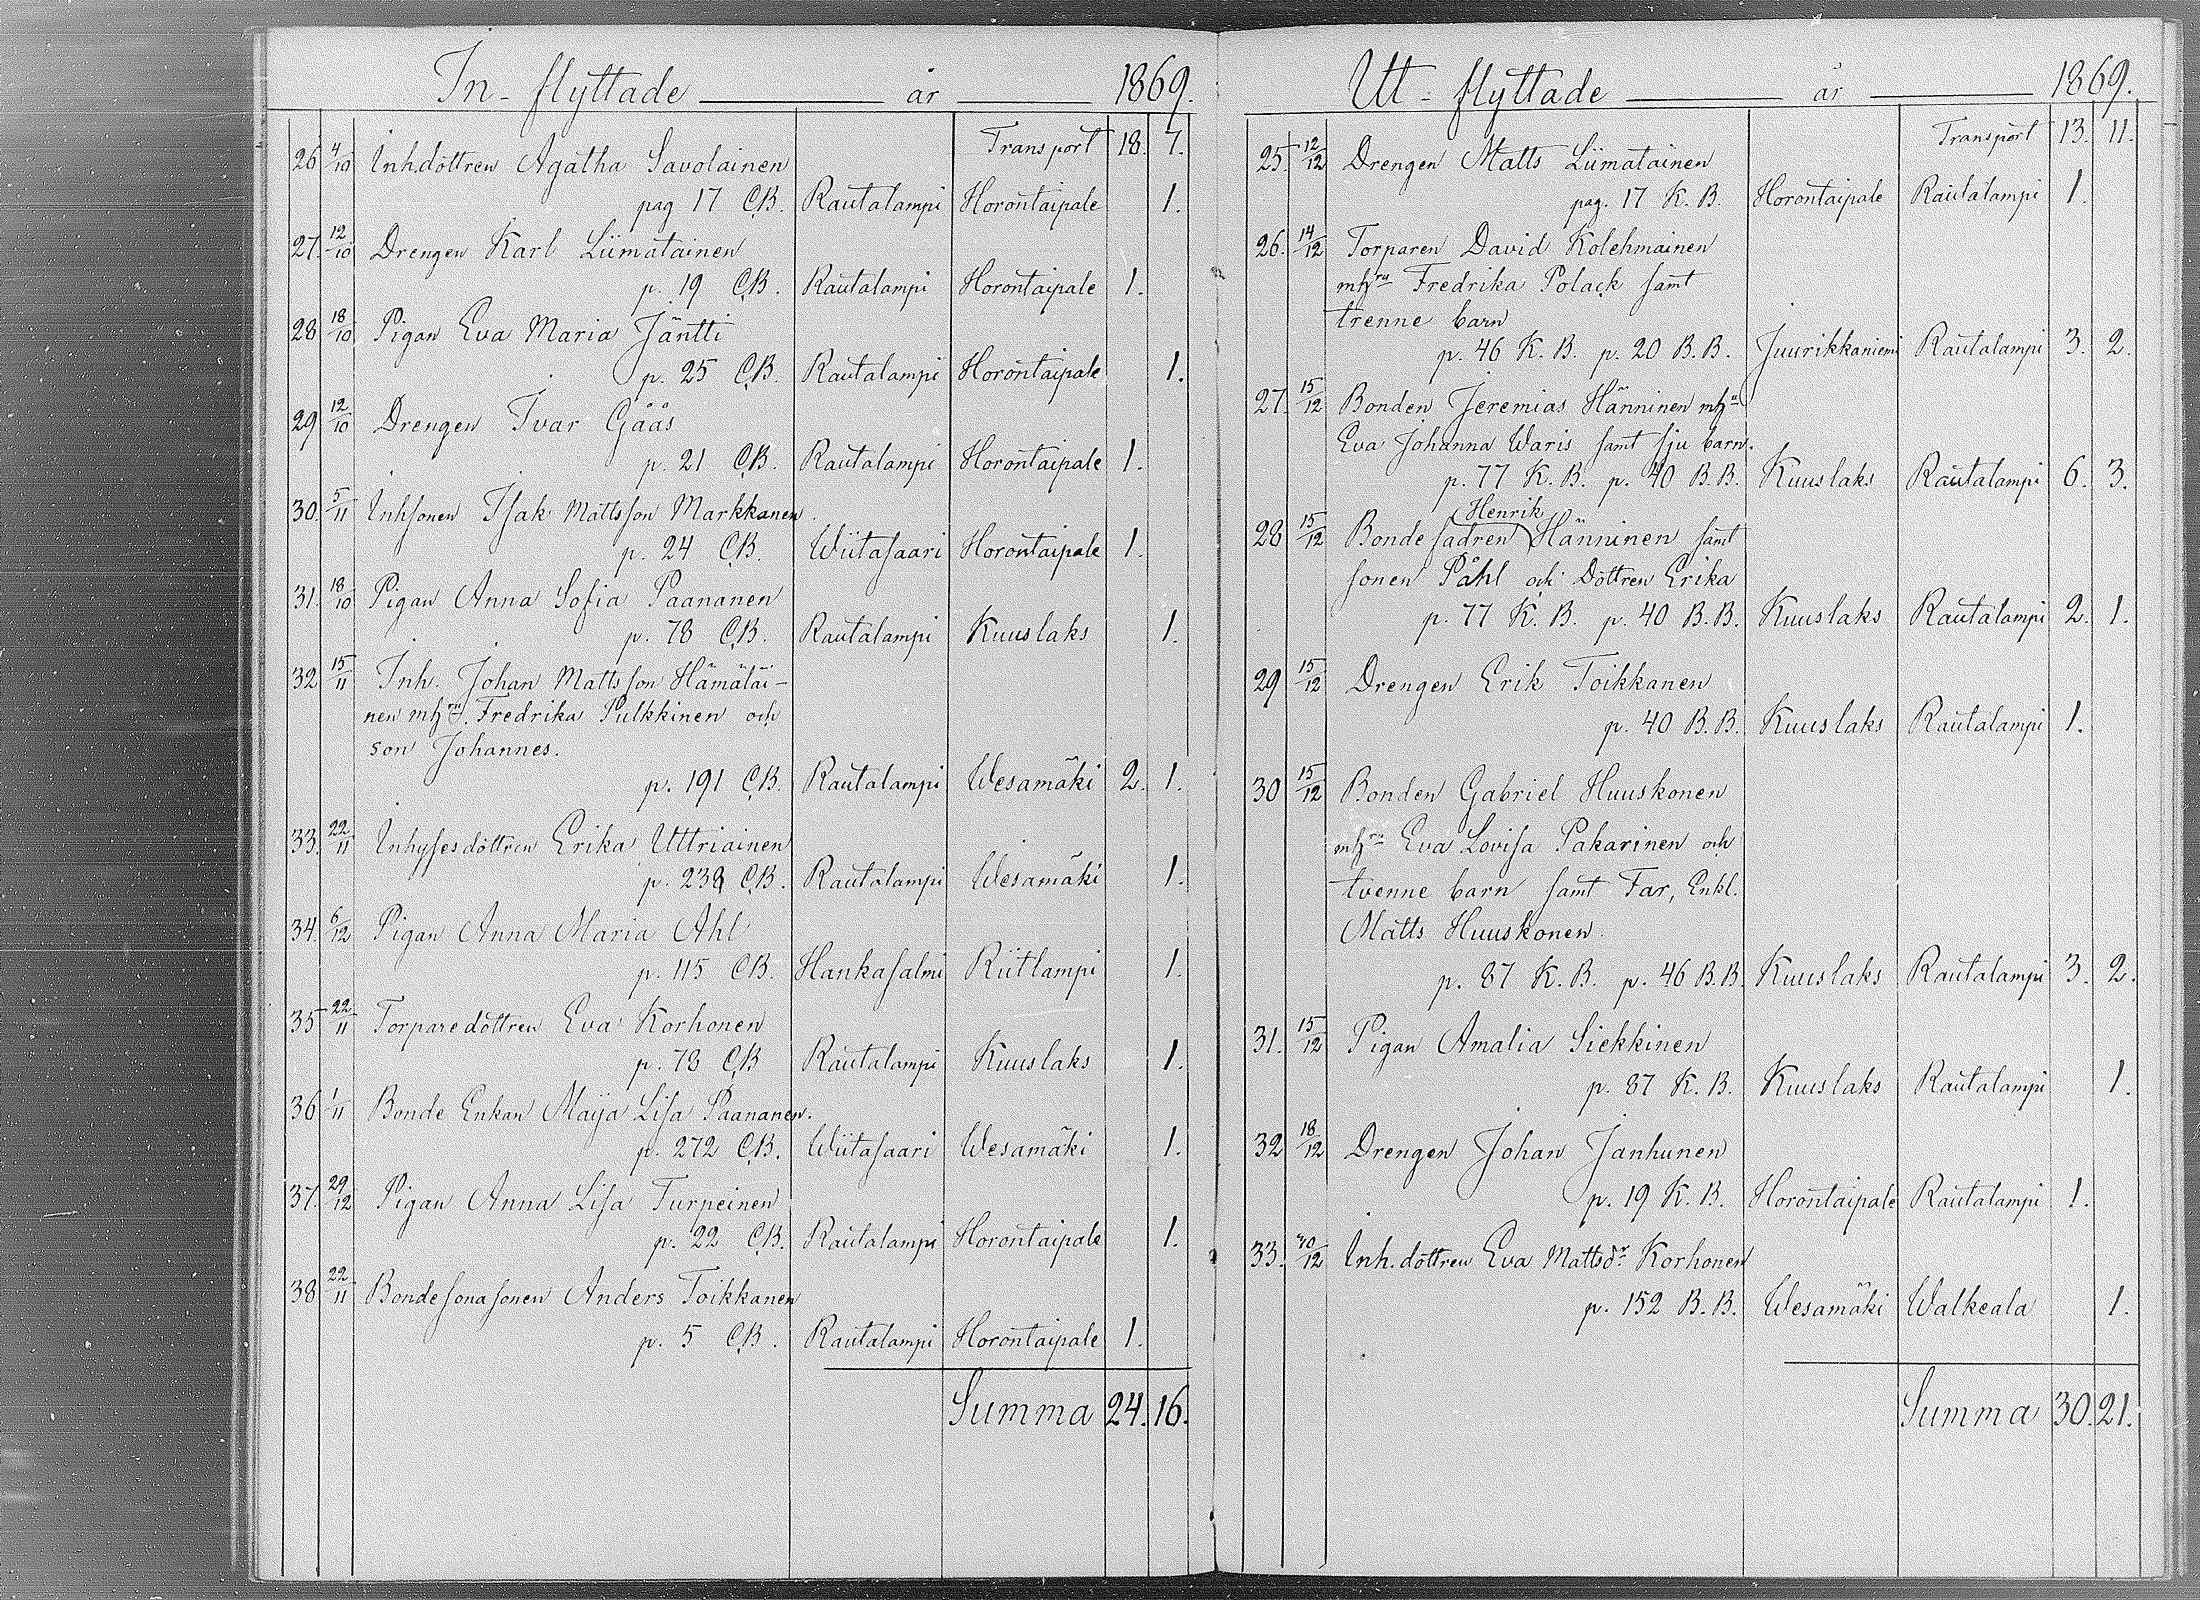 In-flyttade år 1869.
Transport 18. 7.
26 4/10 Inh.döttren Agatha Savolainen
pag 17 C.B. Rautalampi Horontaipale 1.
27. 12/10 Drengen Karl Liimatainen
p. 19 C.B. Rautalampi Horontaipale 1.
28 18/10 Pigan Eva Maria Jäntti
p. 25 C.B. Rautalampi Horontaipale 1.
29 12/10 Drengen Ivar Gåås
p. 21 C.B. Rautalampi Horontaipale 1.
30. 5/11 Inhsonen Isak Mattsson Markkanen.
p. 24 C.B. Wiitasaari Horontaipale 1.
31. 18/10 Pigan Anna Sofia Paananen
p. 78 C.B. Rautalampi Kuuslaks 1.
32 15/11 Inh. Johan Mattsson Hämäläi-
nen mhru. Fredrika Pulkkinen och
son Johannes.
p. 191 C.B. Rautalampi Wesamäki 2. 1.
33. 22/11 Inhysesdöttren Erika Uttriainen
p. 238 C.B. Rautalampi Wesamäki 1.
34. 6/12 Pigan Anna Maria Ahl
p. 115 C.B. Hankasalmi Riitlampi 1.
35 22/11 Torparedöttren Eva Korhonen
p. 78 C.B Rautalampi Kuuslaks 1.
36 1/11 Bonde Enkan Maija Lisa Paananen.
p. 272 C.B. Wiitasaari Wesamäki 1.
37. 29/12 Pigan Anna Lisa Turpeinen
p. 22 C.B. Rautalampi Horontaipale 1.
38 22/11 Bondesonasonen Anders Toikkanen
p. 5 C.B. Rautalampi Horontaipale 1.
Summa 24. 16.
Ut-flyttade år 1869.
Transport 13. 11.
25. 12/12 Drengen Matts Liimatainen
pag. 17 K. B. Horontaipale Rautalampi 1.
26. 14/12 Torparen David Kolehmainen
mhru Fredrika Polack samt
trenne barn
p. 46 K. B. p. 20 B. B. Juurikkaniemi Rautalampi 3. 2.
27. 15/12 Bonden Jeremias Hänninen mhu
Eva Johanna Waris samt sju barn.
p. 77 K. B. p. 40 B. B. Kuuslaks Rautalampi 6. 3.
Henrik
28 15/12 Bondefadren Hänninen samt
sonen Påhl och Döttren Erika
p. 77 K. B. p. 40 B. B. Kuuslaks Rautalampi 2. 1.
29 15/12 Drengen Erik Toikkanen
p. 40 B. B. Kuuslaks Rautalampi 1.
30 15/12 Bonden Gabriel Huuskonen
mhru Eva Lovisa Pakarinen och
tvenne barn samt Far, Enkl.
Matts Huuskonen.
p. 87 K. B. p. 46 B. B. Kuuslaks Rautalampi 3. 2.
31. 15/12 Pigan Amalia Siekkinen
p. 87 K. B. Kuuslaks Rautalampi 1.
32 18/12 Drengen Johan Janhunen
p. 19 K. B. Horontaipale Rautalampi 1.
33. 30/12 Inh.döttren Eva Mattsdr Korhonen
p. 152 B. B. Wesamäki Walkeala 1.
Summa 30. 21.